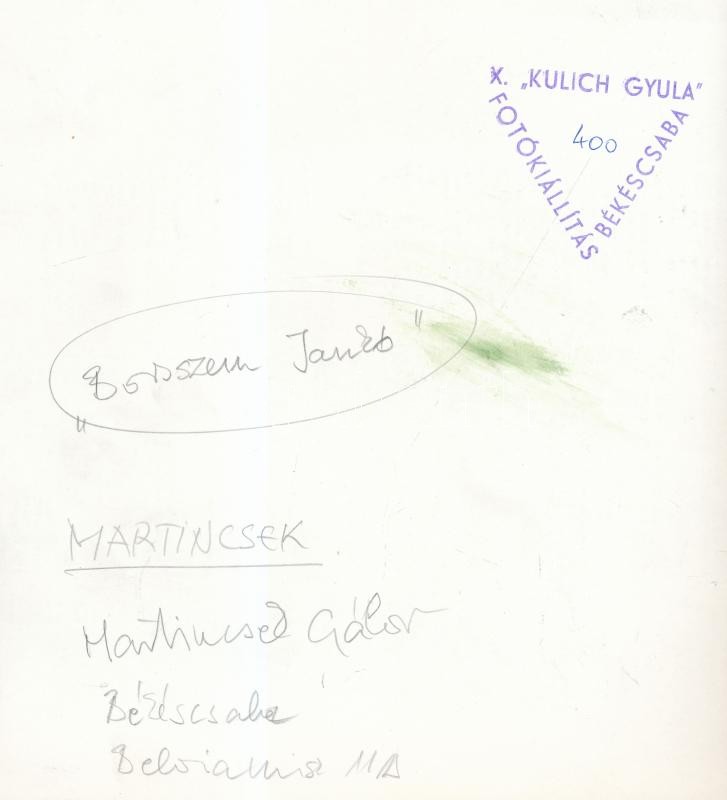 X. „KULICH GYULA”
FOTÓKIÁLLÍTÁS
BÉKÉSCSABA
400
„Borsszem Jankó”
MARTINCSEK
Martincsek Gábor
Békéscsaba